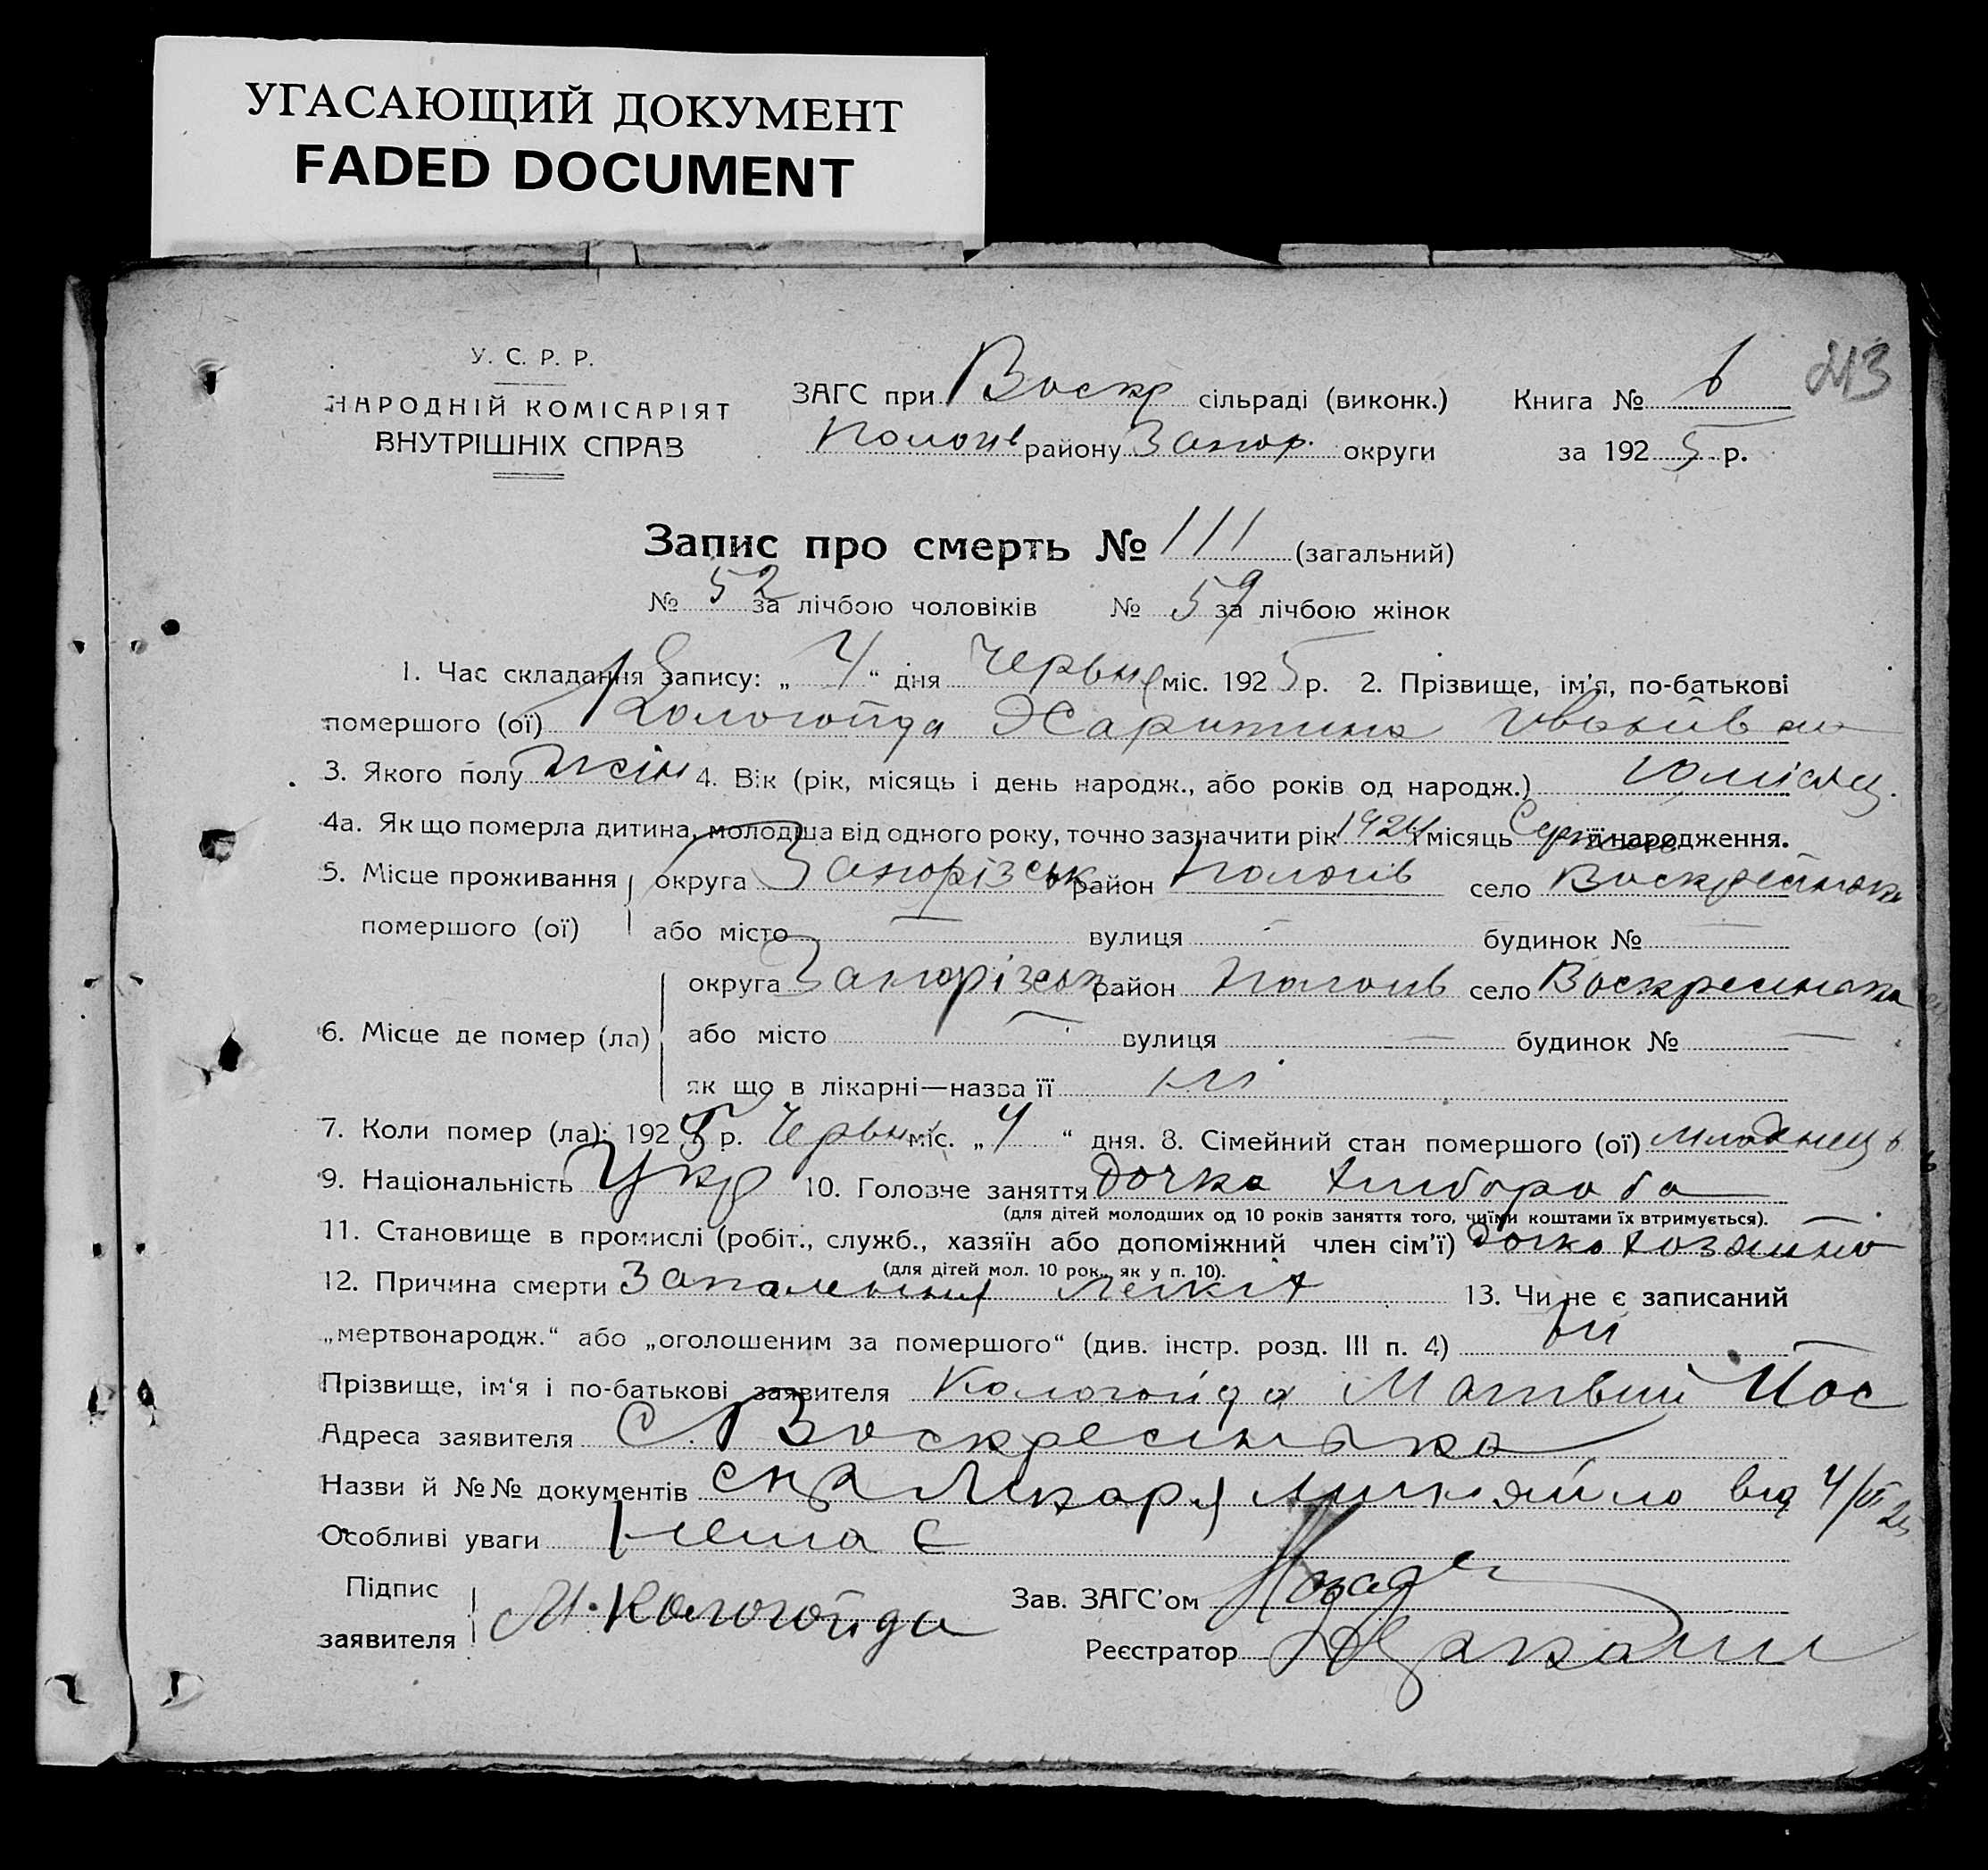 УГАСАЮЩИЙ ДОКУМЕНТ
FADED DOCUMENT
213
У. С. Р. Р.
НАРОДНІЙ КОМІСАРІЯТ
ВНУТРІШНІХ СПРАВ
ЗАГС при Воскр сільраді (виконк.)
Пологів району Запор. округи
Книга №
за 1925 р.
Запис про смерть № 111 (загальний)
№ 52 за лічбою чоловіків № 59 за лічбою жінок
1. Час складання запису: „ 4 “ дня Червня міс. 1925 р. 2. Прізвище, ім'я, по-батькові
помершого (ої) Кологойда Харитина Іванівна
3. Якого полу жін 4. Вік (рік, місяць і день народж., або років од народж.) 10 місяц.
4а. Як що померла дитина, молодша від одного року, точно зазначити рік 1924 і місяць Серпня її народження.
5. Місце проживання округа Запорізськ район Пологів село Воскресінька
помершого (ої) або місто — вулиця - будинок № —
округа Запорізськ район Пологів село Воскресинька
6. Місце де помер (ла) або місто — вулиця — будинок № —
як що в лікарні—назва її ні
7. Коли помер (ла): 1925 р. Червн міс. „ 4 “ дня. 8. Сімейний стан помершого (ої) младенець
9. Національність Укр 10. Головне заняття Дочка хлибороба
(для дітей молодших од 10 років заняття того, чиїми коштами їх втримується).
11. Становище в промислі (робіт., служб., хазяїн або допоміжний член сім'ї) дочка
(для дітей мол. 10 рок., як у п. 10).
12. Причина смерти Запалення Легких 13. Чи не є записаний
„мертвонародж.“ або „оголошеним за помершого“ (див. інстр. розд. III п. 4) ні
Прізвище, ім'я і по-батькові заявителя Кологойда Матвий Йос
Адреса заявителя С. Воскресинька
Назви й №№ документів Лікаря від 4/VI 25
Особливі уваги Нема є
Підпис
заявителя М. Кологойда
Зав. ЗАГС'ом
Реєстратор